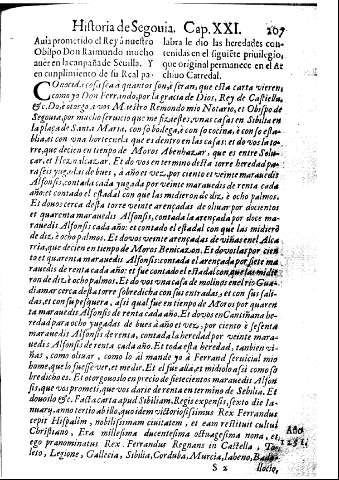 Historia de Segouia. Cap. XXI. 207
Auia prometido el Rey à nuestro
Obispo Don Raimundo mucho
auer en la canpaña de Seuilla. Y
en cunplimiento de su Real pa
labra le dio las heredades con-
tenidas en el siguiẽte priuilegio,
que original permanece en el Ar
chiuo Catredal.
COnocida cosa sea a quantos son, è seran, que esta carta vieren
como yo Don Ferrando, por la gracia de Dios, Rey de Castella,
&c. Do, è otorgo, a vos Maestro Remondo mio Notario, et Obispo de
Segouia, por mucho seruicio que me fiziestes, vnas casas en Sibilia en
la plaça de Santa Maria, con so bodega, è con so cocina, è con so esta-
blia, et con vna hortezuela que es dentro en las casas: et do vos la to-
rre, que decien en tiempo de Moros Abenhazar, que es entre Solu-
car, et Heznalcazar. Et do vos en termino desta torre heredad pa-
ra seis yugadas de bues, à año et vez, por ciento et veinte marauedis
Alfonsis, contada cada yugada por veinte marauedis de renta cada
año: et contado el estadal con que las midieron de diz, è ocho palmos.
Et douos cerca desta torre veinte arençadas de oliuar por docientos
et quarenta marauedis Alfonsis, contada la arençada por doce ma-
rauedis de renta cada año: et contado el estadal con que las midierõ
de diz, è ocho palmos. Et do vos veinte arençadas de viñas en el Alca
ria, que decien en tiempo de Moros Benicazon. Et dovoslas por cien
to et quarenta marauedis Alfonsis: contada el arençada por siete ma
rauedis de renta cada año: et fue contado el estadal con que las midie
ron de diz, è ocho palmos. Et do vos vna casa de molinos en el rio Gua
diamar cerca desta torre sobredicha con sus entradas, et con sus sali-
das, et con su pesquera, asi qual fue en tiempo de Moros por quaren
ta marauedis Alfonsis de renta cada año. Et do vos en Cantiñana he-
redad para ocho yugadas de bues à año et vez, por ciento è sesenta
marauedis Alfonsis de renta, contada la heredad por veinte mara-
uedis Alfonsis de renta cada año. Et toda esta heredad, tambien vi-
ñas, como oliuar, como lo al mande yo à Ferrand seruicial mio
home, que lo fuesse ver, et medir. Et el fue alla, et midiolo asi como so
bredicho es. Et otorgouoslo en precio de sietecientos marauedis Alfon
sis, que vos prometì, que vos darie de renta en termino de Sebilia. Et
douoslo &c. Facta carta apud Sibiliam. Regis expensis, sexto die Ia-
nuarij, anno tertio ab illo, quo idem victoriosissimus Rex Ferrandus
cepit Hispalim, nobilissimam ciuitatem, et eam restituit cultui
Christiano, Era millesima ducentesima octuagesima nona, et
ego pranominatus Rex Ferrandus Regnans in Castella, To-
leto, Legione, Gallecia, Sibilia, Corduba, Murcia, Iaheno, Bad-
Año
1251.
S 2
llocio,